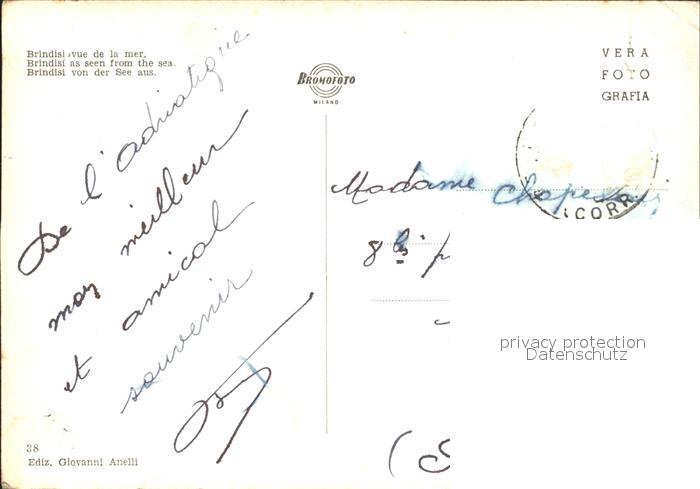 Brindisi vue de la mer.
Brindisi as seen from the sea.
Brindisi von der See aus.
BROMOFOTO
MILANO
VERA
FOTO
GRAFIA
De l'adriatique
mon meilleur
et amical
souvenir
Madame
8 bis
CORR
privacy protection
Datenschutz
(S
38
Ediz. Giovanni Anelli